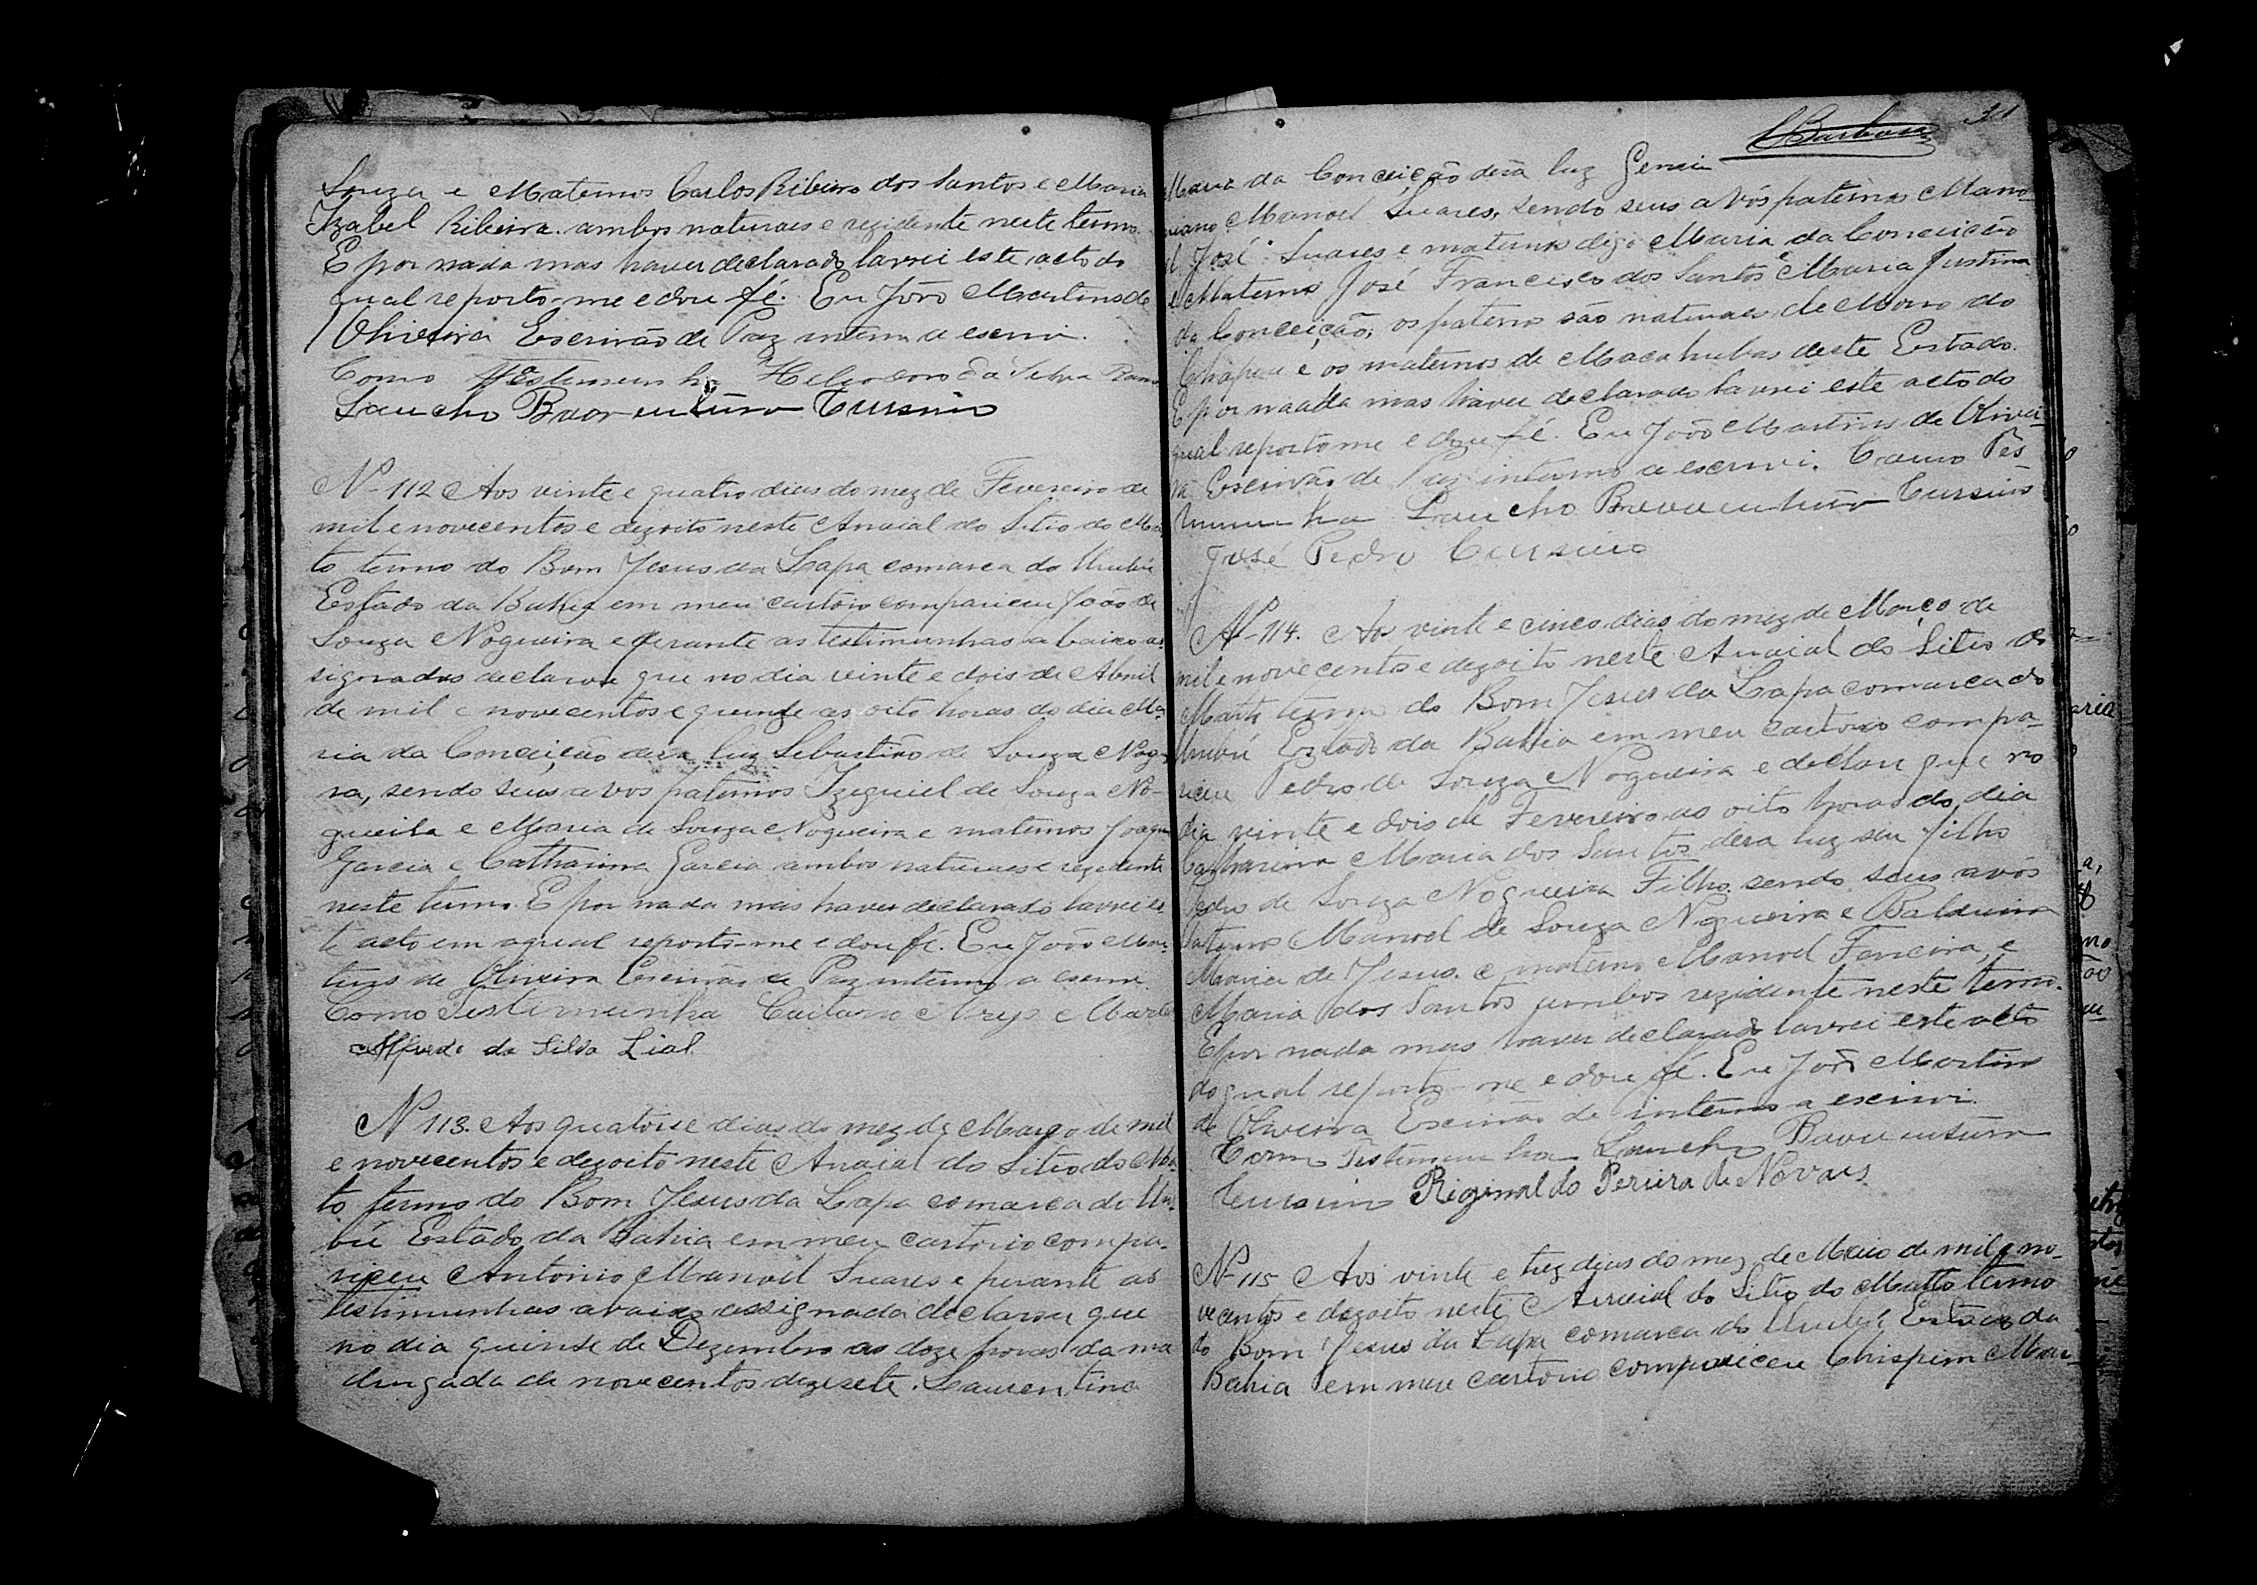 Souza e Maternos Carlos Ribeiro dos Santos e Maria
Izabel Ribeira. ambos naturaes e rezidente neste termo.
E por nada mas haver declarado lavrei este acto do
qual reporto-me e dou fé. Eu João Martins de
Oliveira Escrivão de Paz interno a escrivi.
Como Testemunha Heliodoro da Silva Ramo
Sancho Buaventura Cursino
Nº 112 Aos vinte e quatro dias do mez de Fevereiro de
mil e novecentos e dezoito neste Arraial do Sitio do Ma
to termo do Bom Jesus da Lapa comarca do Urubú
Estado da Bahia em meu cartorio compariceu João de
Souza Nogueira e perante as testimunhas a baixo as
signadas declarou que no dia vinte e dois de Abril
de mil e novecentos e quinze as oito horas do dia Ma
ria da Conceição dera luz Sebastião de Souza Nog
ra, sendo seus avos paternos Izequiel de Souza No-
gueira e Maria de Souza Nogueira e maternos Joaqu
Garcia e Catharina Garcia ambos naturaes e rezidente
neste termo. E por nada mais haver declarado lavrei es
te acto em aqual reporto-me e dou fé. Eu João Mar
tins de Oliveira Escrivão de Paz interno a escrivi
Como Testimunha Caitano
Alfredo da Silva Lial
Nº 113. Aos quatorse dias do mez de Março de mil
e novecentos e dezoito neste Arraial do Sitio do Ma
to termo do Bom Jesus da Lapa comarca do Uru
bú Estado da Bahia em meu cartorio compa-
riceu Antonio Manoel Suares e perante as
testimunhas abaixo assignada declarou que
no dia quinse de Dezembro as doze horas da ma
drugada de novecentos dezesete. Laurentina
Barbosa 31
Maria da Conceição dera luz Genui
niano Manoel Suares, sendo seus avós paternos Mano
el José Suares e materna digo Maria da Conceicão
e Materno José Francisco dos Santos e Maria Justina
da Conceição, os paterno são naturaes de Morro do
Chapeu e os maternos de Macahubas deste Estado.
E por naada mas haver declarado lavrei este acto do
qual reporto me e dou fé. Eu João Martins de Olivei
ra Escrivão de Paz interno a escrivi. Como Tes
timunha Sancho Buaventura Cursino
José Pedro Cursino
Nº 114. Aos vinte e cinco dias do mez de Março de
mil e novecentos e dezoito neste Arraial do Sitio do
Matto termo do Bom Jesus da Lapa comarca do
Urubú Estado da Bahia em meu cartorio compa-
riceu Pedro de Souza Nogueira e declarou que no
dia vinte e dois de Fevereiro as oito horas do dia
Catharina Maria dos Santos dera luz seu filho
Pedro de Souza Nogueira Filho sendo seus avós
paternos Manoel de Souza Nogueira e Balduina
Maria de Jesus. e materno Manoel Ferreira, e
Maria dos Santos ambos rezidente neste termo.
E por nada mas haver declarado lavrei este acto
do qual reporto-me e dou fé. Eu João Martins
de Oliveira Escrivão de interno a escrivi.
Como Testimunha Sancho Buaventura
Cursino Riginaldo Pereira de Novaes
Nº 115 Aos vinte e trez dias do mez de Maio de mil e no-
vecentos e dezoito neste Arraial do Sitio do Matto termo
do Bom Jesus da Lapa comarca do Urubú Estado da
Bahia em meu cartorio compariceu Chrispim Mar